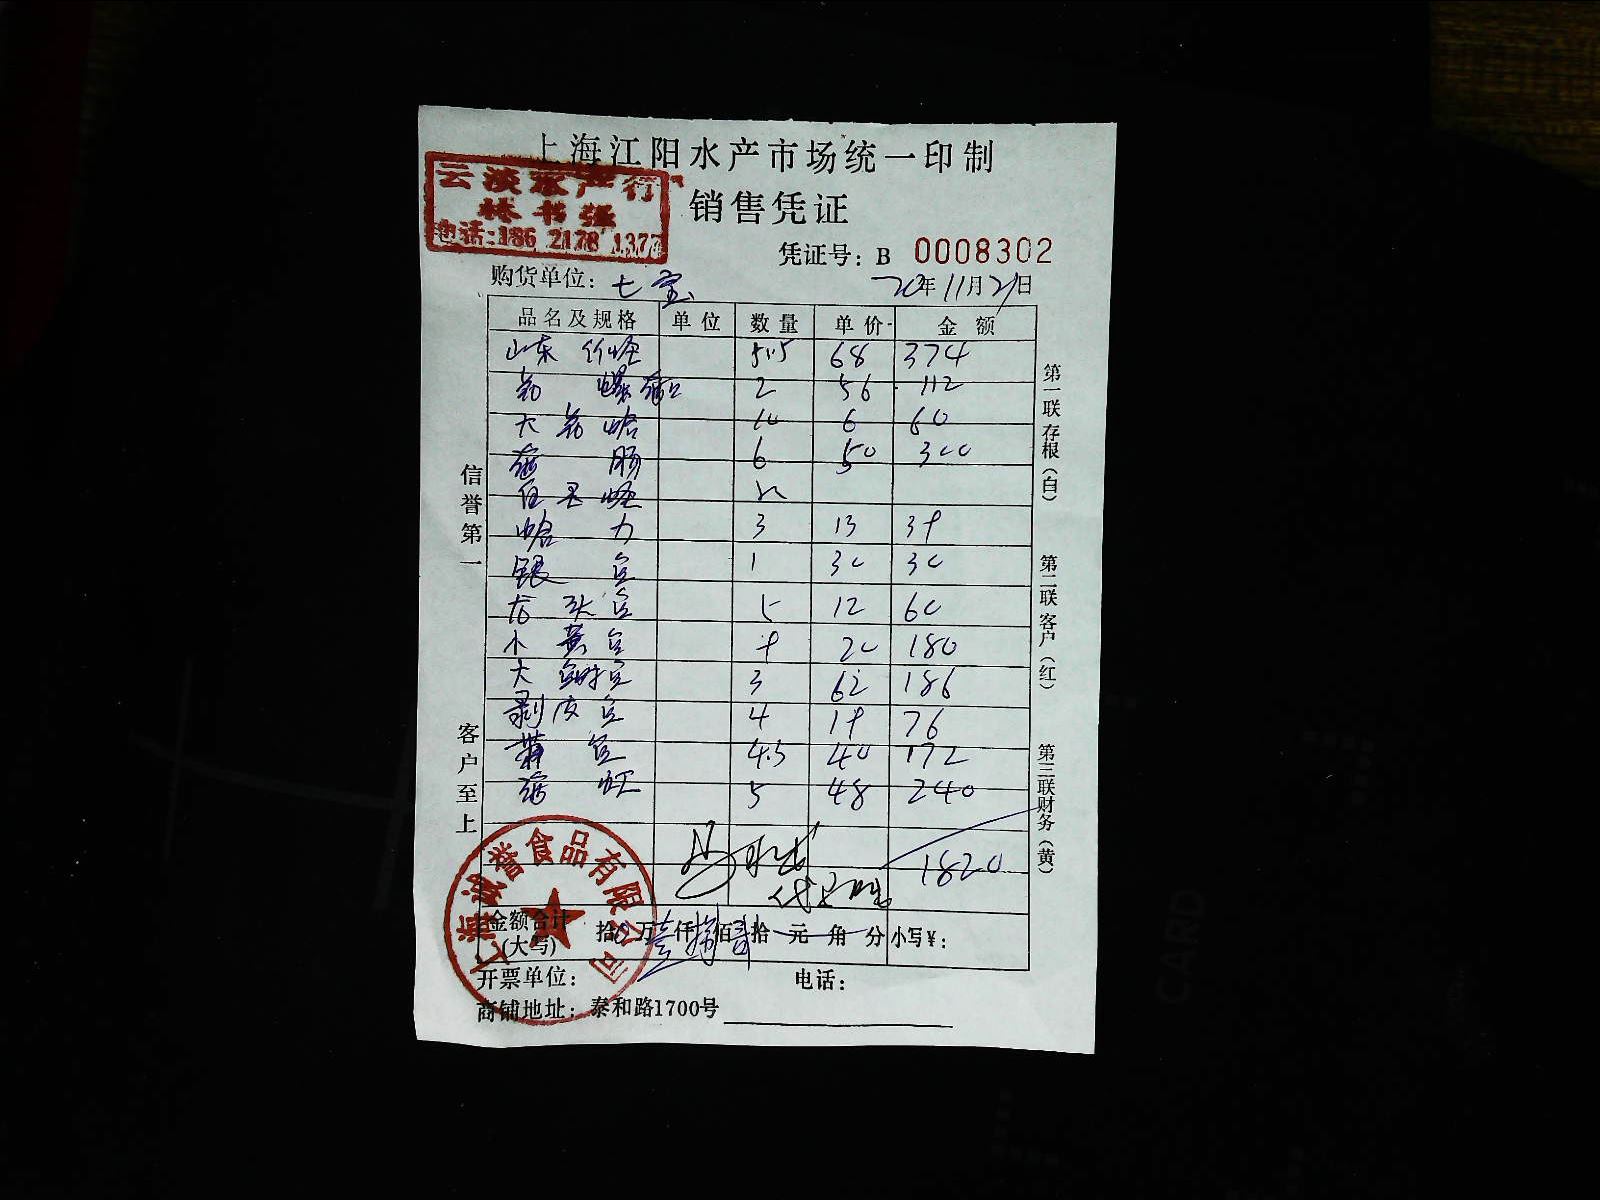 上海江阳水产市场统一印制
云淡水产行
林书强
电话:186 2178 1377
销售凭证
凭证号: B 0008302
购货单位: 七宝 20年11月21日
品名及规格 单位 数量 单价 金额
山东 5.5 68 374
2 56 112
大 哈 10 6 60
肠 6 50 300
哈力 3 13 39
银鱼 1 30 30
龙头鱼 5 12 60
小黄鱼 9 20 180
大 鱼 3 62 186
剥皮鱼 4 19 76
鱼 4.3 40 172
虹 5 48 240
1820
金额合计(大写) 拾 万壹仟捌佰 拾 元 角 分 小写¥:
开票单位: 电话:
商铺地址: 泰和路1700号
信誉第一
客户至上
第一联存根(白)
第二联客户(红)
第三联财务(黄)
上海诚誉食品有限公司
CARD